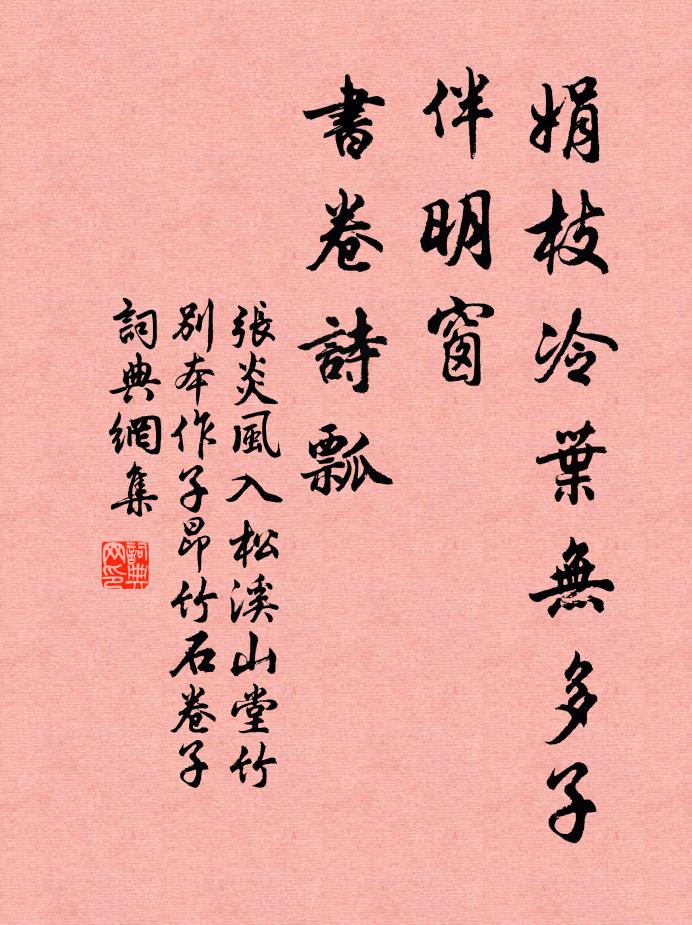 娟枝冷葉無多子
伴明窗
書卷詩瓢
張炎風入松溪山堂竹
別本作子昂竹石卷子
詞典網集
詞典
网印